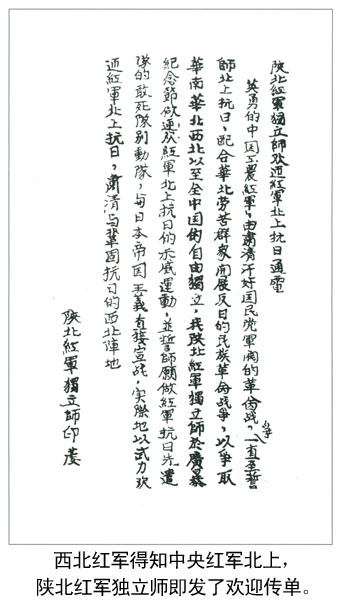 陕北紅軍獨立師欢迎紅軍北上抗日通電
英勇的中国工農紅軍，由肅清汗奸国民党軍阀的革命战争，一直至誓
師北上抗日，配合華北劳苦群眾開展反日的民族革命战爭，以爭取
華南華北西北以至全中国的自由獨立，我陕北紅軍獨立師於廣暴
紀念節做迎欢紅軍北上抗日的示威運動，並誓師願做紅軍抗日先遣
隊的敢死隊别動隊，与日本帝国主義直接宣战，实際地以武力欢
迎紅軍北上抗日，肅清与鞏固抗日的西北陣地
陕北紅軍獨立師印發
西北红军得知中央红军北上，
陕北红军独立师即发了欢迎传单。